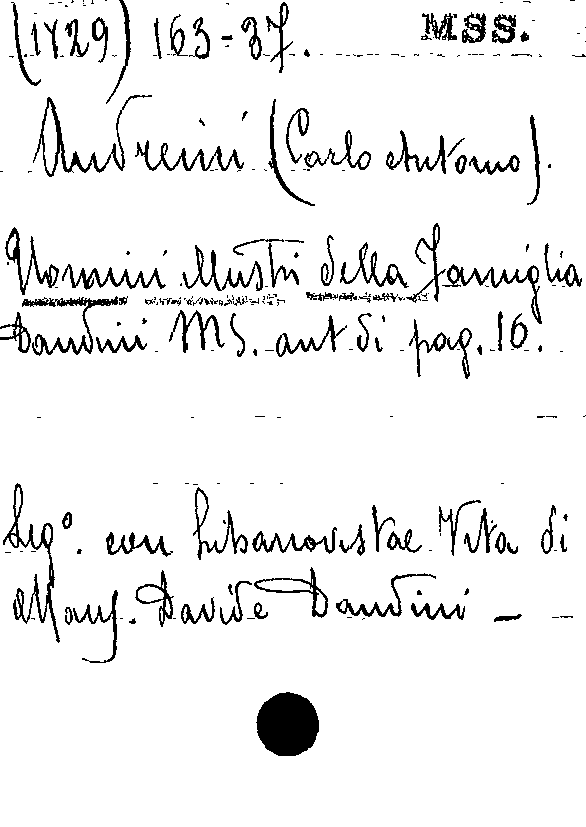 (1729) 163-37. MSS.
Andreini (Carlo Antonio).
Uomini illustri della Famiglia
Dandini MS. aut di pag. 16.
Leg°. con
Vita di
Mons. Davide Dandini -